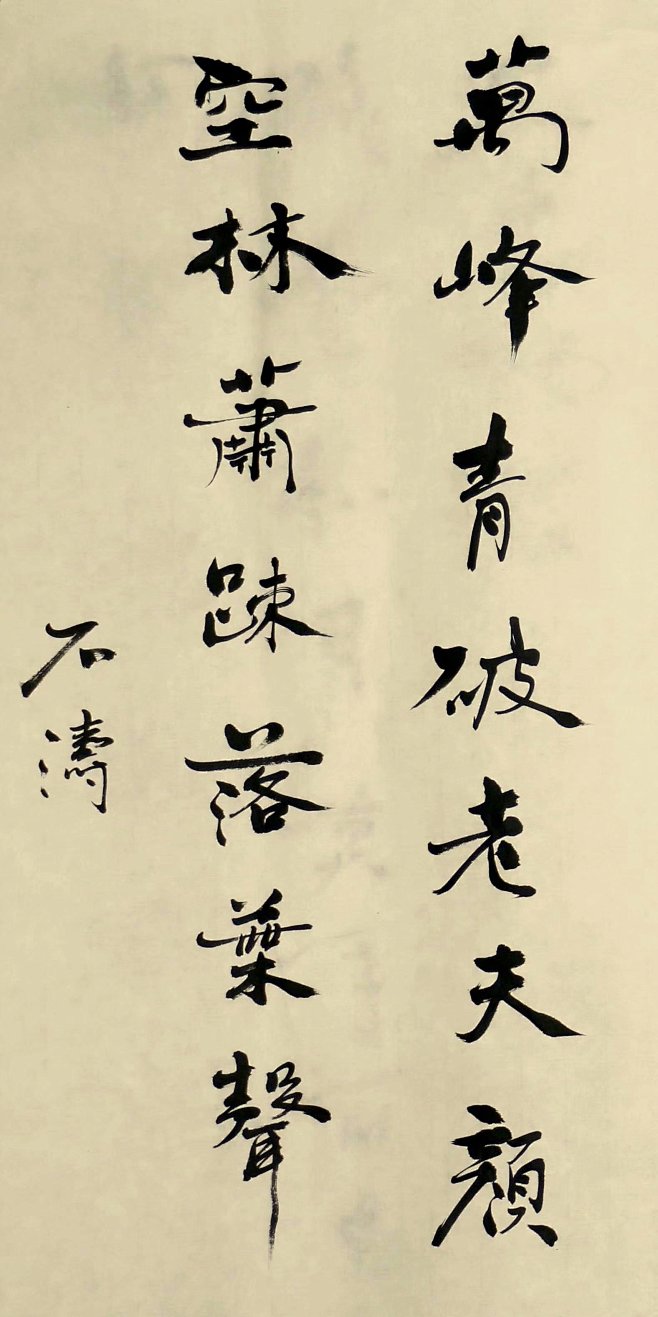 萬峰青破老夫顏
空林蕭踈落葉聲
石濤